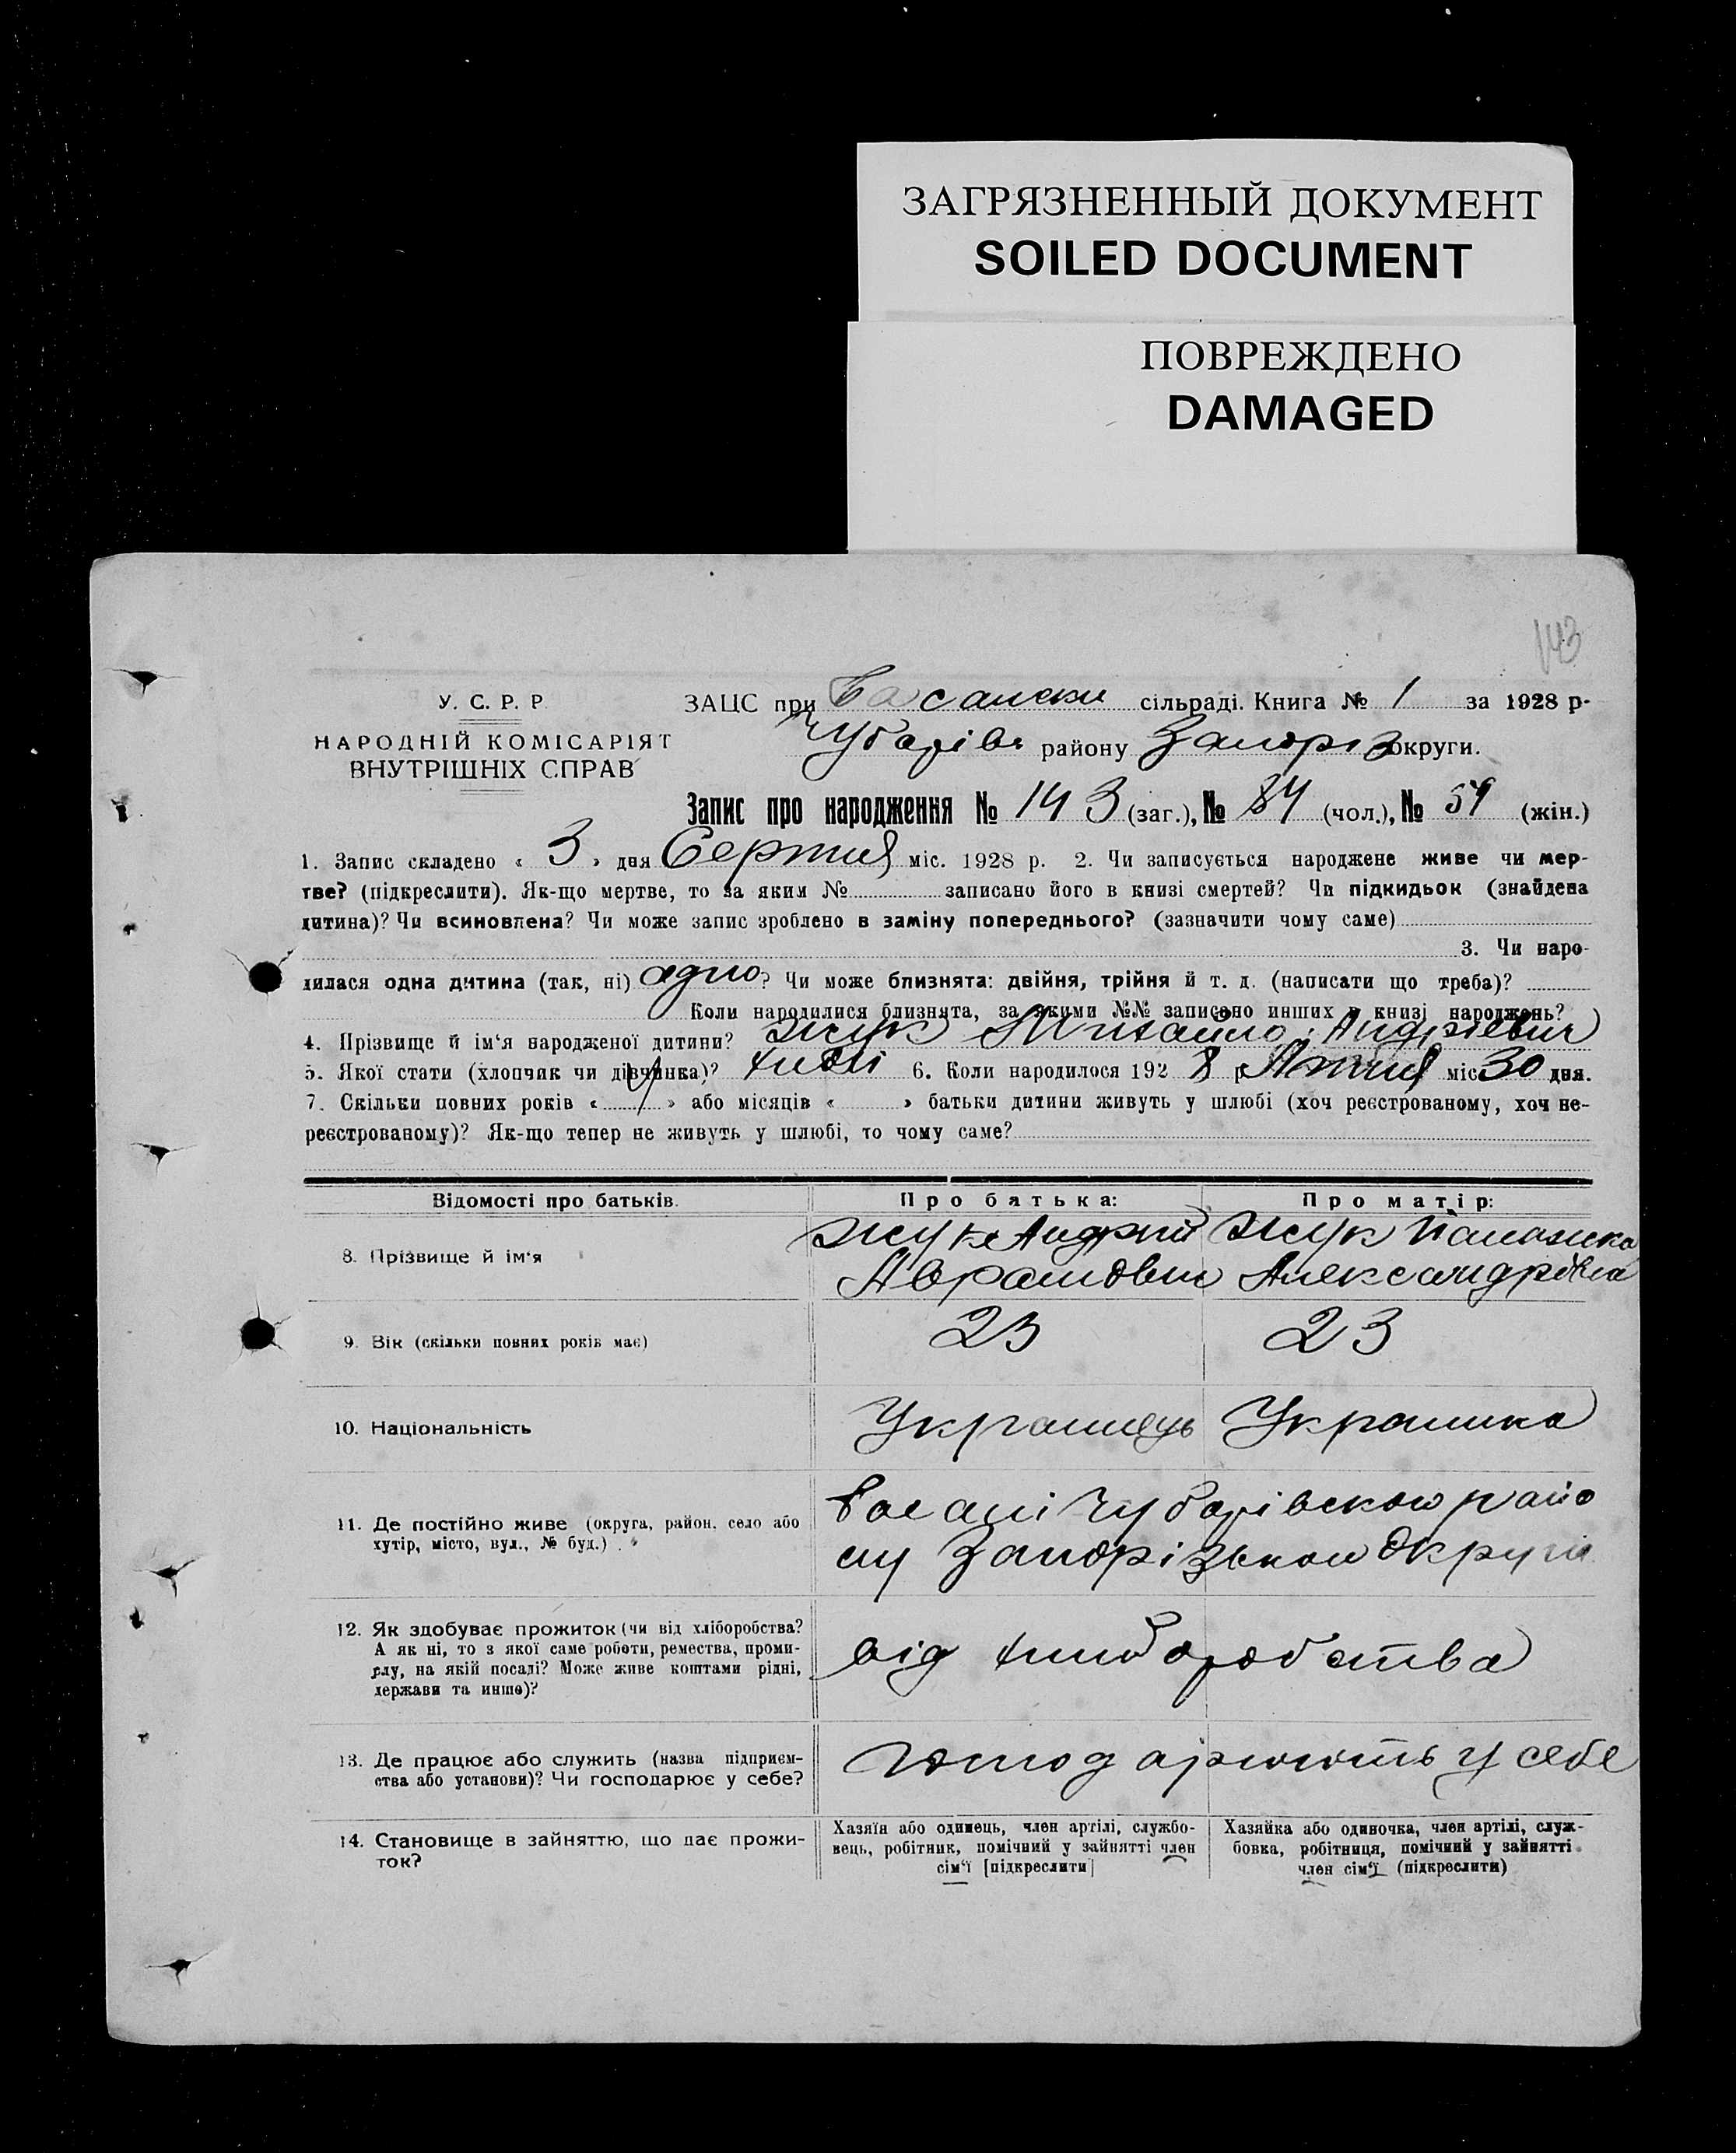 ЗАГРЯЗНЕННЫЙ ДОКУМЕНТ
SOILED DOCUMENT
ПОВРЕЖДЕНО
DAMAGED
143
У. С. Р. Р.
НАРОДНІЙ КОМІСАРІЯТ
ВНУТРІШНІХ СПРАВ
ЗАЦС при Басанськ сільраді. Книга № 1 за 1928 р.
Чубарівс району Запоріз округи.
Запис про народження № 143 (заг.), № 84 (чол.), № 59 (жін.)
1. Запис складено « 3 » дня Серпня міс. 1928 р. 2. Чи записується народжене живе чи мер-
тве? (підкреслити). Як-що мертве, то за яким № записано його в книзі смертей? Чи підкидьок (знайдена
дитина)? Чи всиновлена? Чи може запис зроблено в заміну попереднього? (зазначити чому саме)
3. Чи наро-
дилася одна дитина (так, ні) одно? Чи може близнята: двійня, трійня й т. д. (написати що треба)?
Коли народилися близнята, за якими №№ записано инших в книзі народжень?
4. Прізвище й ім'я народженої дитини? Жук Михайло Андрієвич
5. Якої стати (хлопчик чи дівчинка)? 6. Коли народилося 1928 р. Липня міс 30 дня.
7. Скільки повних років « » або місяців « » батьки дитини живуть у шлюбі (хоч реєстрованому, хоч не-
реєстрованому)? Як-що тепер не живуть у шлюбі, то чому саме?
Відомості про батьків. Про батька: Про матір:
8. Прізвище й ім'я
Жук Андрій Жук Палажка
Аврамович Александрівна
9. Вік (скільки повних років має) 23 23
10. Національність Українець Українка
11. Де постійно живе (округа, район, село або
хутір, місто, вул., № буд.)
Басані Чубарівського райо
ну Запорізькой Округи
12. Як здобуває прожиток (чи від хліборобства?
А як ні, то з якої саме роботи, ремества, проми-
слу, на якій посаді? Може живе коштами рідні,
держави та инше)?
від хліборобства
13. Де працює або служить (назва підприєм-
ства або установи)? Чи господарює у себе?
господарюють у себе
14. Становище в зайняттю, що дає прожи-
ток?
Хазяїн або одинець, член артілі, службо-
вець, робітник, помічний у зайнятті член
сім'ї [підкреслити]
Хазяйка або одиночка, член артілі, служ-
бовка, робітниця, помічний у зайнятті
член сім'ї (підкреслити)